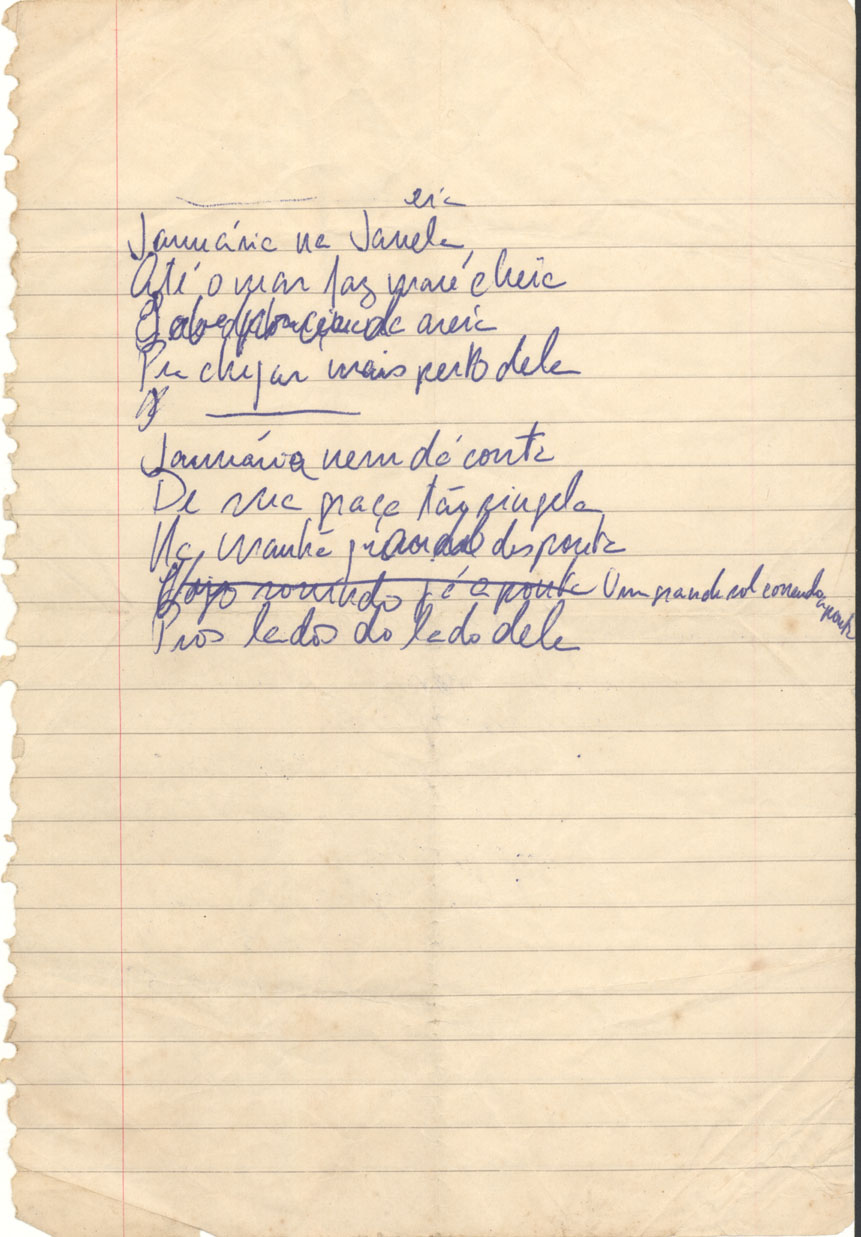 eia
Januária na Janela
Até o mar faz maré cheia
areia
Pra chegar mais perto dela
Januária nem dá conta
De sua graça tão singela
Na manhã desponta
romindo já aponta Um grande sol correndo aponta
Pros lados do lado dela